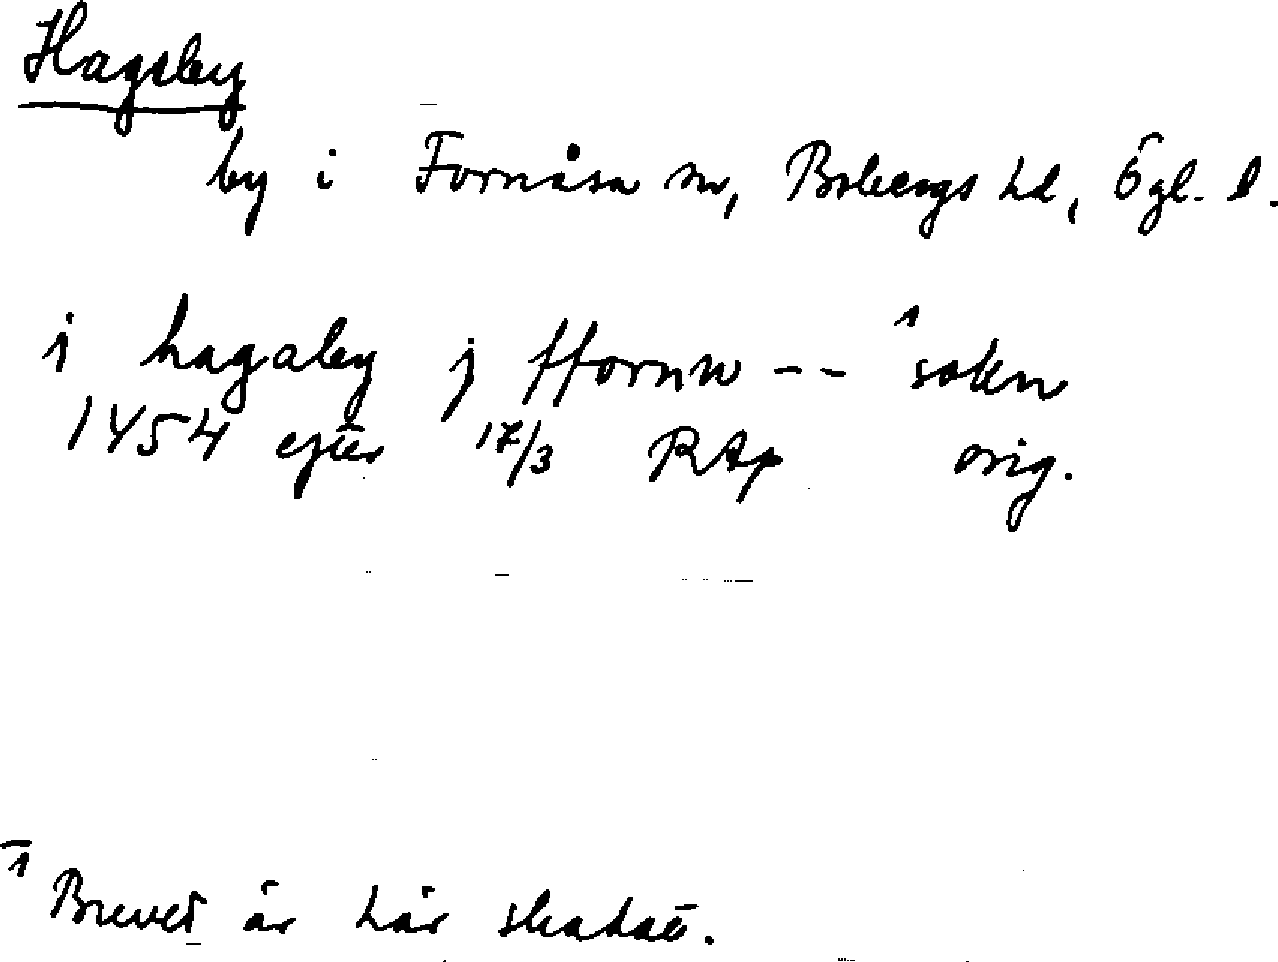 Hagsby
by i Fornåsa sn, Bobergs hd, Ögl. l.
j hagaby j ffornn -- ¹ sokn
1454 efter 17/3 RAp orig.
¹ Brevet är här skadat.